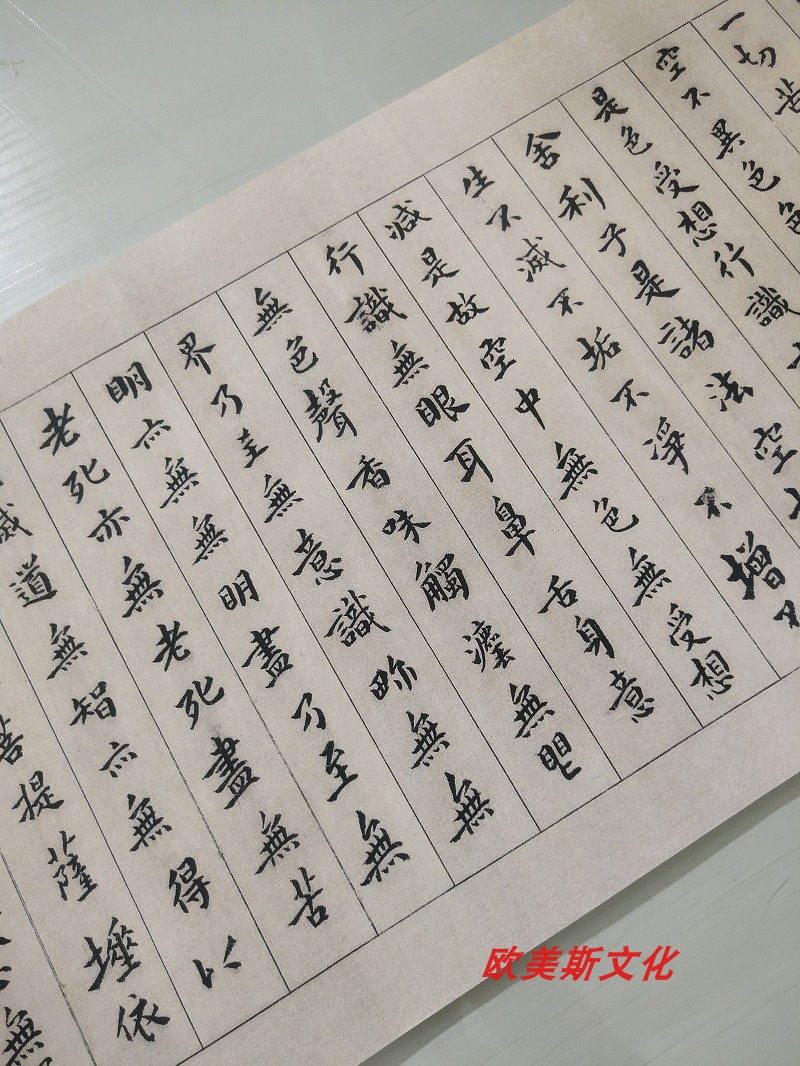 一切苦
空不異色色
是色受想行識
舍利子是諸法空
生不滅不垢不淨不增不
減是故空中無色無受想
行識無眼耳鼻舌身意
無色聲香味觸灋無
界乃至無意識畍無無
明亦無無明盡乃至無
老死亦無老死盡無苦
滅道無智亦無得以
菩提薩埵依
無
欧美斯文化